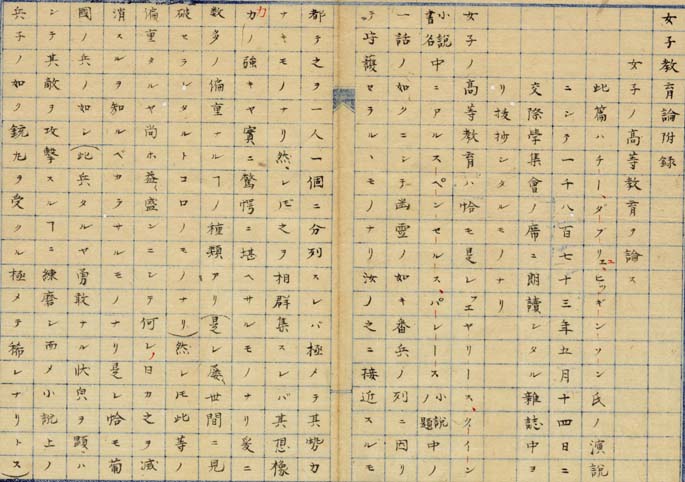 女子教育論附録
女子ノ高等教育ヲ論ス
此篇ハチー、ダブリユ、ヒツギーンソーン氏ノ演説
ニシテ一千八百七十三年五月十四日ニ
交際学集會ノ席ニ朗讀シタル雜誌中ヨ
リ技抄シタルモノナリ
女子ノ高等教育ハ恰モ是レフエヤリース、クイーン
小説書名中ニアルスペンセルス、パレースノ小説題中ノ
一話ノ如クニシテ幽霊ノ如キ番兵ノ列ニ因リ
テ守護セラルヽモノナリ汝ノ之ニ接近スルモ
都テ之ヲ一人一個ニ分列スレバ極メテ其勢力
ナキモノナリ然レ𪜈之ヲ相群集スレバ其想像
力ノ強キヤ實ニ驚愕ニ堪ヘサルモノナリ爰ニ
數多ノ偏重ナルヿノ種類アリ(是レ屡世間ニ見
破セラレタルトコロノモノナリ)然レ𪜈此等ノ
偏重タルヤ尚ホ益盛ンニシテ何レノ日カ之ヲ減
消スルヲ知ルベカラサルモノナリ是レ恰モ葡
國ノ兵ノ如シ(此兵タルヤ勇敢ナル状皃ヲ顯ハ
シテ其敵ヲ攻撃スルヿニ練磨シ而メ小説上ノ
兵子ノ如ク銃丸ヲ受クル極メテ稀レナリトス)